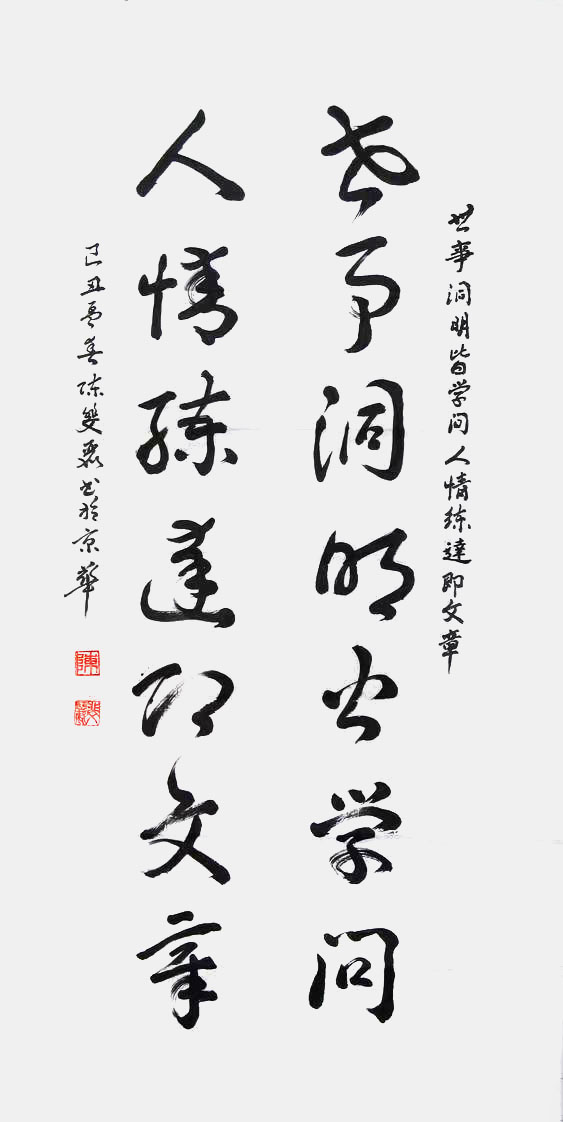 世事洞明皆学问人情练達即文章
世事洞明皆学问
人情练達即文章
己丑孟春陈雙书於京華
陳